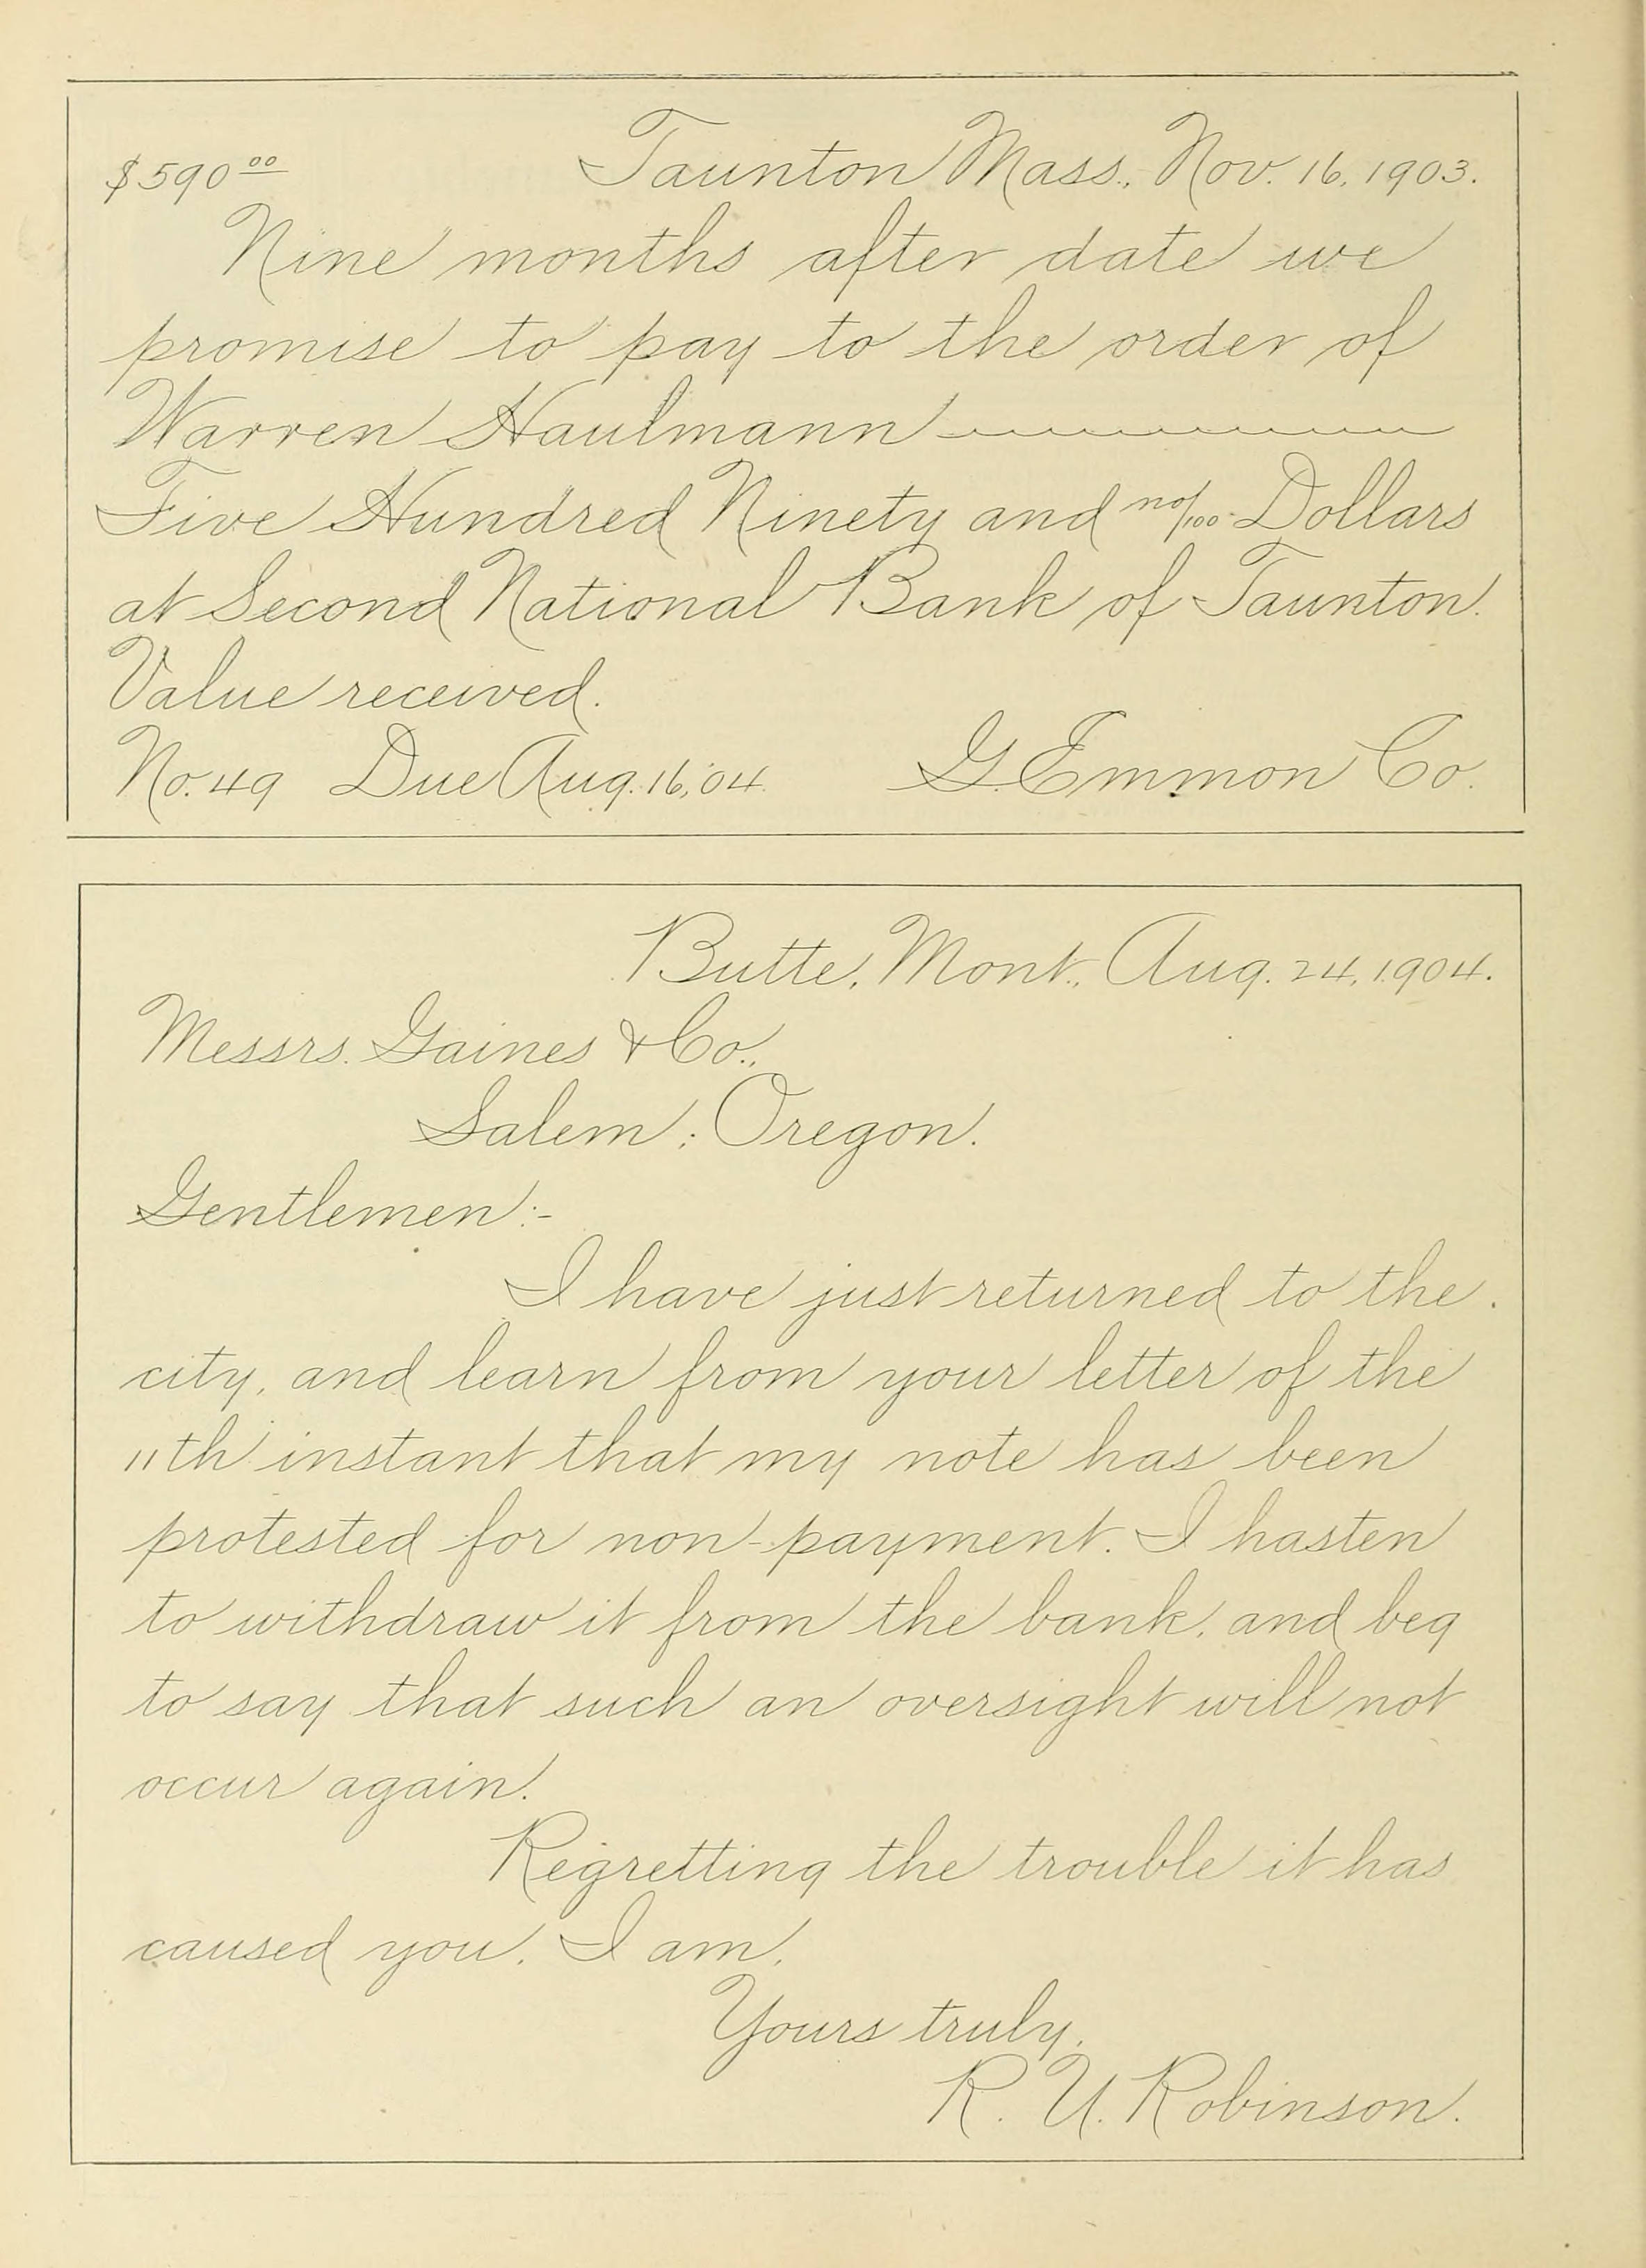 $590 00 Taunton Mass., Nov. 16, 1903.
Nine months after date we
promise to pay to the order of
Warren Haulmann
Five Hundred Ninety and no/100 Dollars
at Second National Bank of Taunton.
Value received.
No. 49 Due Aug. 16, '04. G. Emmon Co.
Butte, Mont., Aug. 24, 1904.
Messrs. Gaines & Co.,
Salem, Oregon.
Gentlemen:-
I have just returned to the
city, and learn from your letter of the
11th instant that my note has been
protested for non-payment. I hasten
to withdraw it from the bank, and beg
to say that such an oversight will not
occur again.
Regretting the trouble it has
caused you, I am,
Yours truly,
R. U. Robinson.